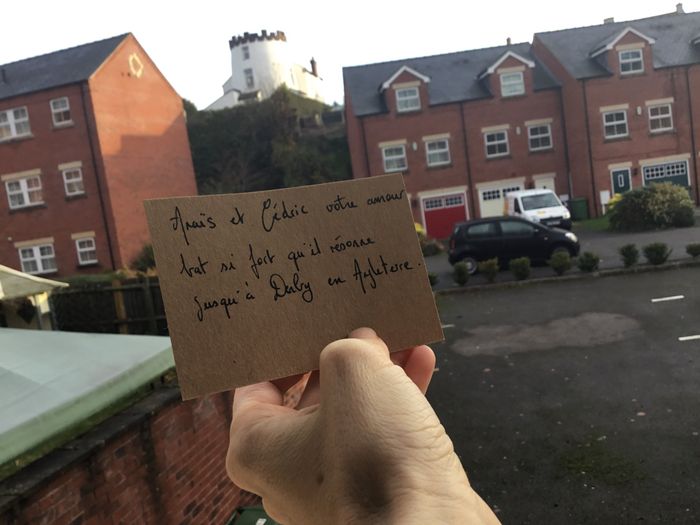 Anaïs et Cédric votre amour
bat si fort qu'il résonne
jusqu'à Derby en Angleterre.